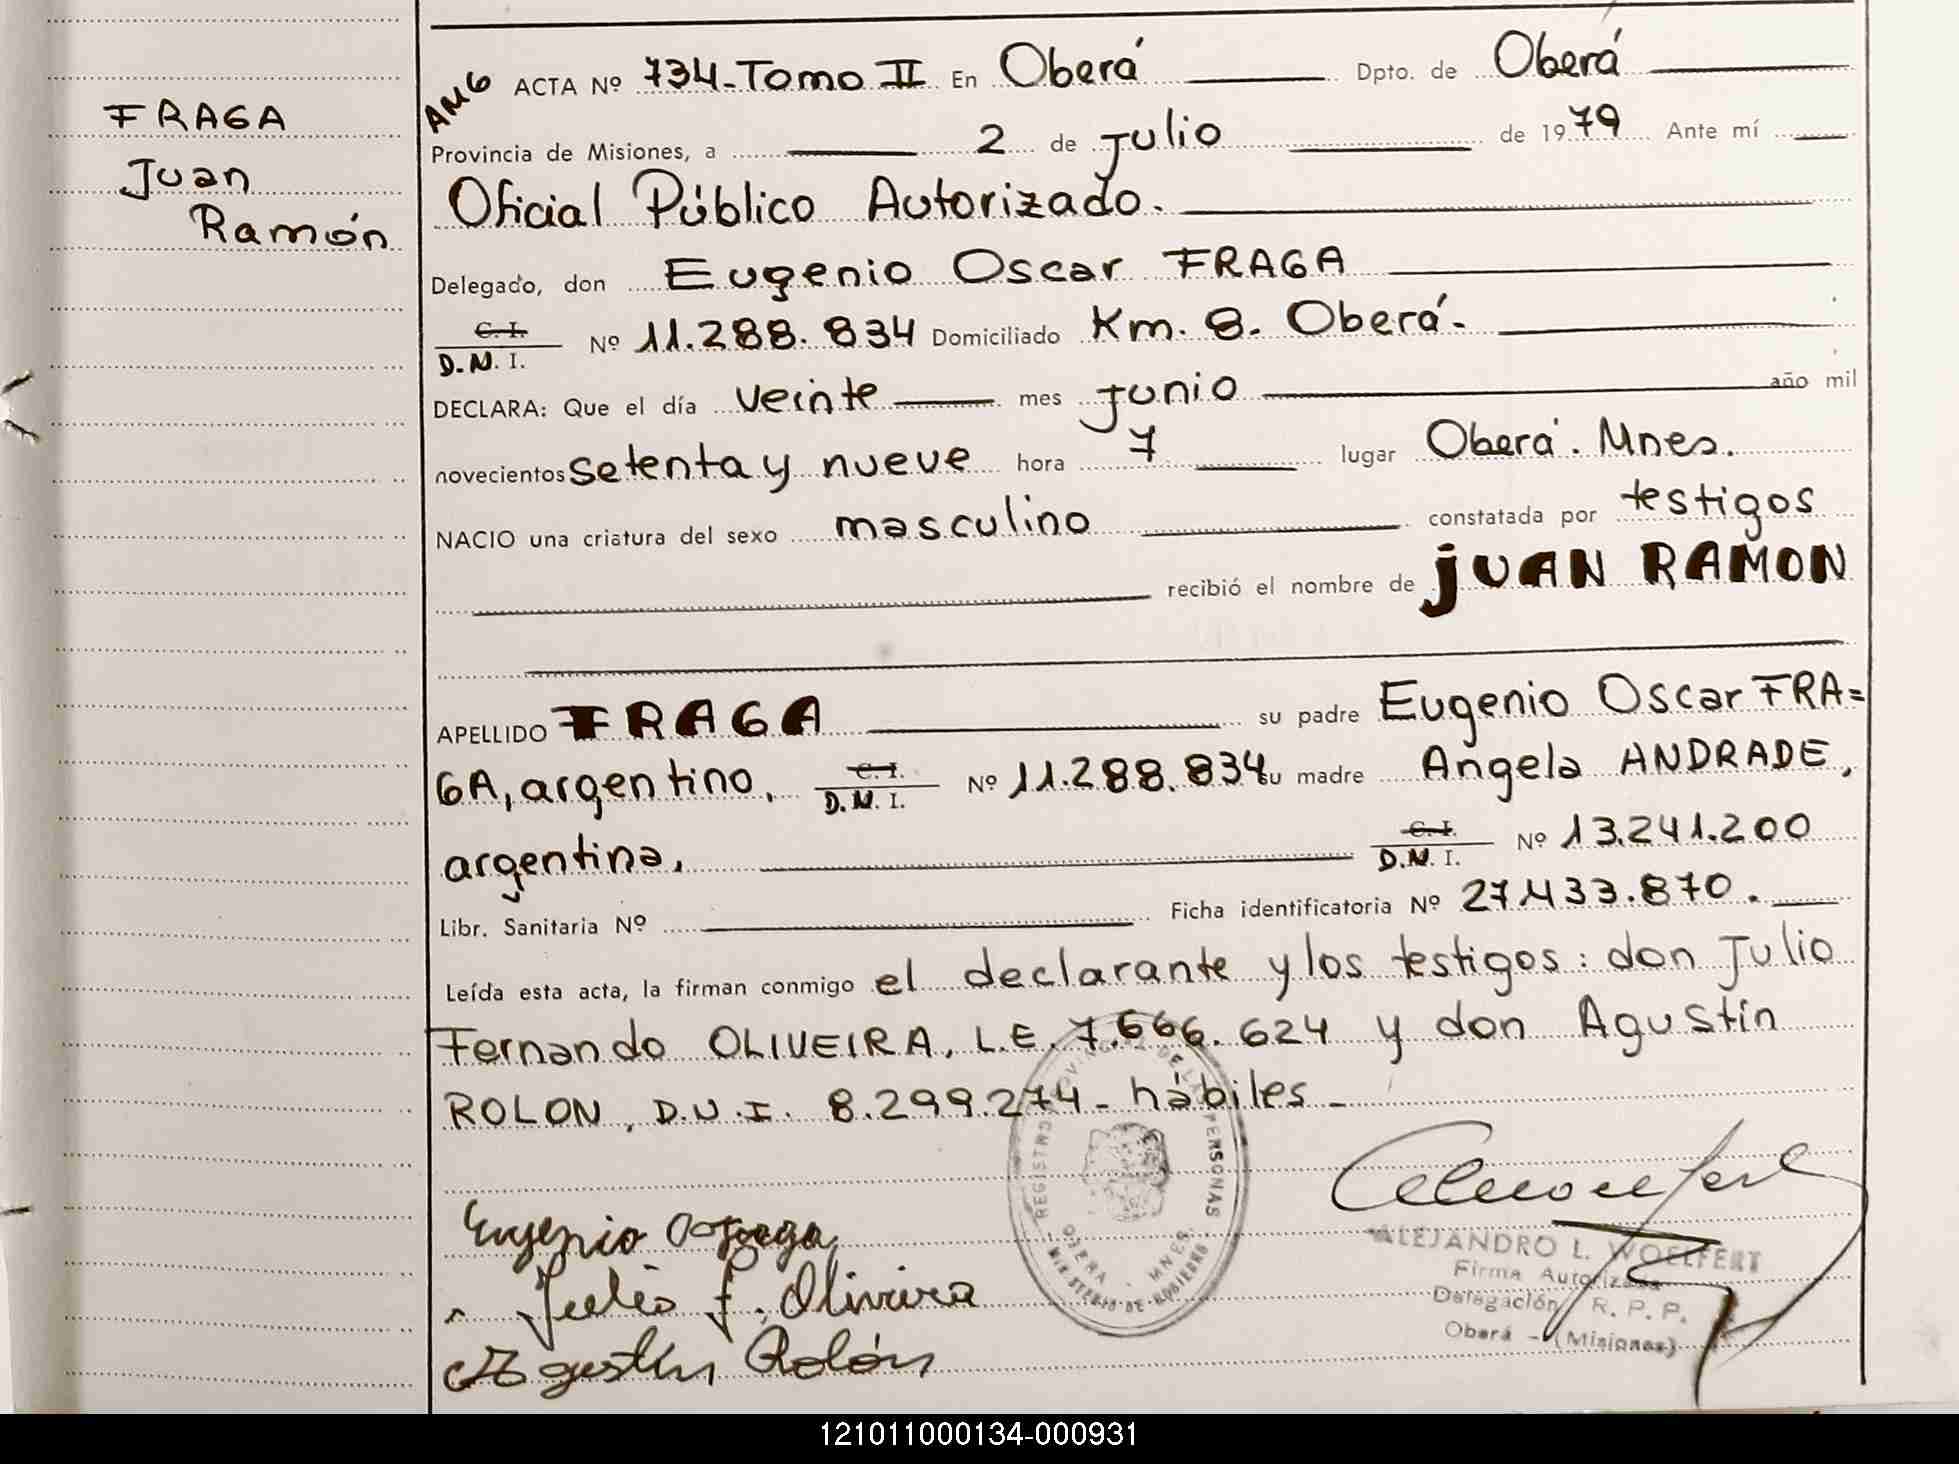 FRAGA
Juan
Ramón
AMG ACTA Nº 734-Tomo II En Oberá Dpto. de Oberá
Provincia de Misiones, a 2 de Julio de 1979 Ante mí
Oficial Público Autorizado.
Delegado, don Eugenio Oscar FRAGA
C.I.
D.N.I. Nº 11.288.834 Domiciliado Km. 8. Oberá-
DECLARA: Que el día veinte mes junio año mil
novecientos setenta y nueve hora 7 lugar Oberá. Mnes.
NACIO una criatura del sexo masculino constatada por testigos
recibió el nombre de JUAN RAMON
APELLIDO FRAGA su padre Eugenio Oscar FRA=
GA, argentino, C.I. D.N.I. Nº 11.288.834 su madre Angela ANDRADE,
argentina, C.I. D.N.I. Nº 13.241.200
Libr. Sanitaria Nº Ficha identificatoria Nº 27.433.870.
Leída esta acta, la firman conmigo el declarante y los testigos: don Julio
Fernando OLIVEIRA, L.E. 7.666.624 y don Agustín
ROLON, D.N.I. 8.299.274- hábiles-
REGISTRO PROVINCIAL DE LAS PERSONAS
OBERA - MNES.
MINISTERIO DE GOBIERNO
Eugenio O Fraga
Julio F. Olivera
Agustín Rolón
ALEJANDRO L. WOELFERT
Firma Autorizada
Delegación R. P. P.
Oberá - (Misiones)
121011000134-000931